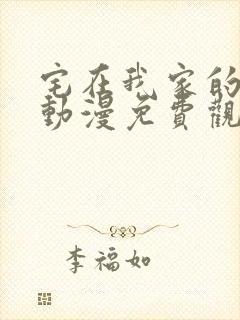 宅在我家的
動漫免費觀
李福如